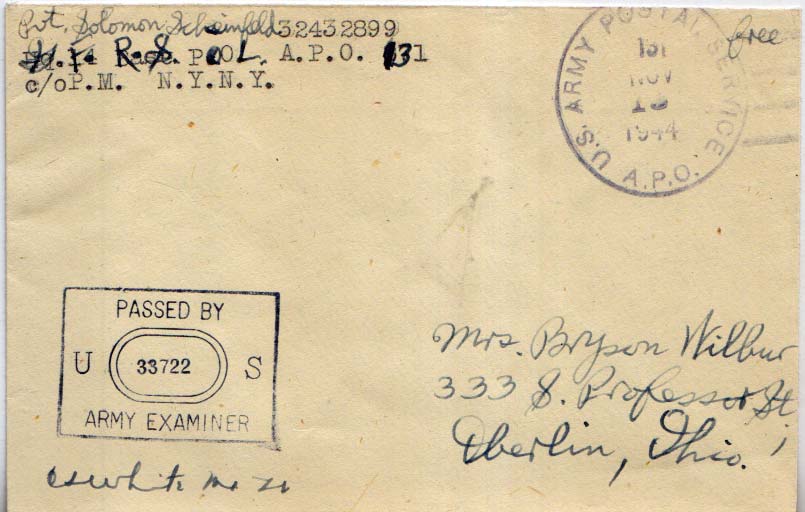 Pvt. Solomon Scheinfeld 32432899
A.P.O.
c/o P.M. N.Y.N.Y.
U.S. ARMY POSTAL SERVICE
NOV
13
1944
A.P.O.
free
PASSED BY
U 33722 S
ARMY EXAMINER
Mrs. Bryson Wilbur
333 S. Professor St
Oberlin, Ohio.